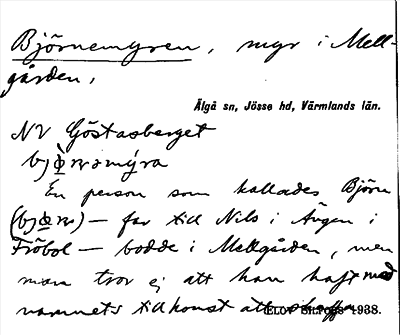 Björnemyren, myr i Mell-
gården,
Älgå sn, Jösse hd, Värmlands län.
NV Göstasberget
En person som kallades Björn
— far till Nils i Ängen i
Fröbol — bodde i Mellgården, men
man tror ej att han haft med
namnets tillkomst att
1938.